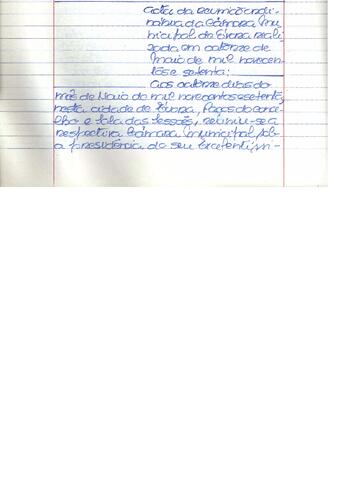 Acta da reunião ordi-
nária da Câmara Mu-
nicipal de Évora reali
zada em catorze de
Maio de mil novecen-
tos e setenta:
Aos catorze dias do
mês de Maio de mil novecentos e setenta,
nesta cidade de Évora, Paços do Conce
lho e sala das sessões, reuniu-se a
respectiva Câmara Municipal sob
a presidência do seu Excelentíssi-